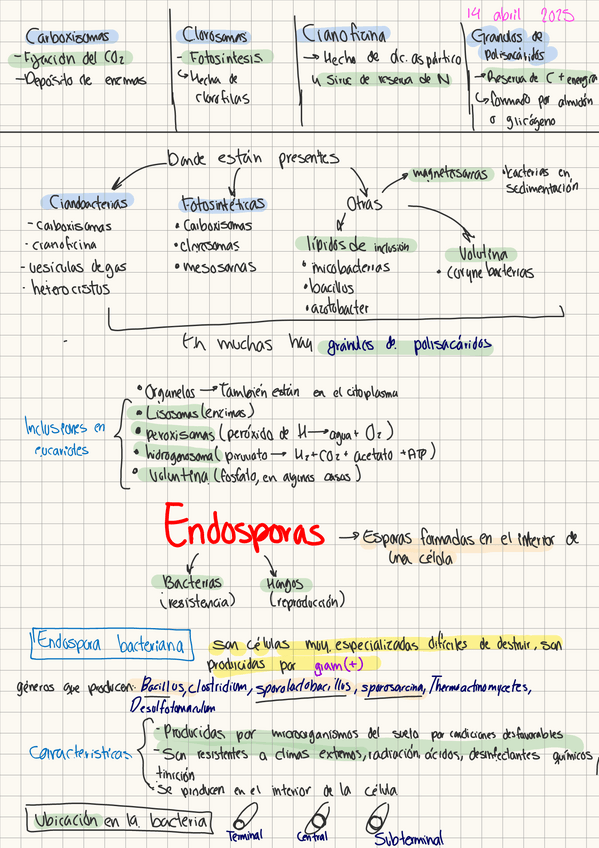 14 abril 2025
Carboxisomas
- Fijación del CO2
- Depósito de enzimas
Clorosomas
- Fotosíntesis
↳ Hecha de
clorofilas
Cianoficina
→ Hecho de ác. aspártico
↳ Sirve de reserva de N
Granulos de
polisacáridos
→ Reserva de C + energía
↳ formado por almidón
o glicógeno
Donde están presentes
Cianobacterias
- carboxisomas
· cianoficina
- vesículas de gas
· heterocistos
Fotosintéticas
• Carboxisomas
• clorosomas
• mesosomas
Otras
magnetosomas
• bacterias en
sedimentación
lípidos de inclusión
• micobacterias
• bacillos
• azotobacter
Volutina
• corynebacterias
En muchas hay granulos de polisacáridos
Inclusiones en
eucariotes
• Organelos → También están en el citoplasma
• Lisosomas (enzimas)
• peroxisomas (peróxido de H → agua + O2)
• hidrogenosoma (piruvato → H2 + CO2 + acetato + ATP)
• voluntina (fosfato, en algunos casos)
Endosporas
→ Esporas formadas en el interior de
una célula
Bacterias
(resistencia)
Hongos
(reproducción)
Endospora bacteriana
son células muy especializadas difíciles de destruir, son
producidas por gram (+)
géneros que producen: Bacillus, clostridium, sporolactobacillos, sporosarcina, Thermoactinomycetes,
Desulfotomaculum
Caracteristicas
- Producidas por microorganismos del suelo por condiciones desfavorables
- Son resistentes a climas extremos, radiación, ácidos, desinfectantes químicos,
tinición
• Se producen en el interior de la célula
Ubicación en la bacteria
Terminal
Central
Subterminal